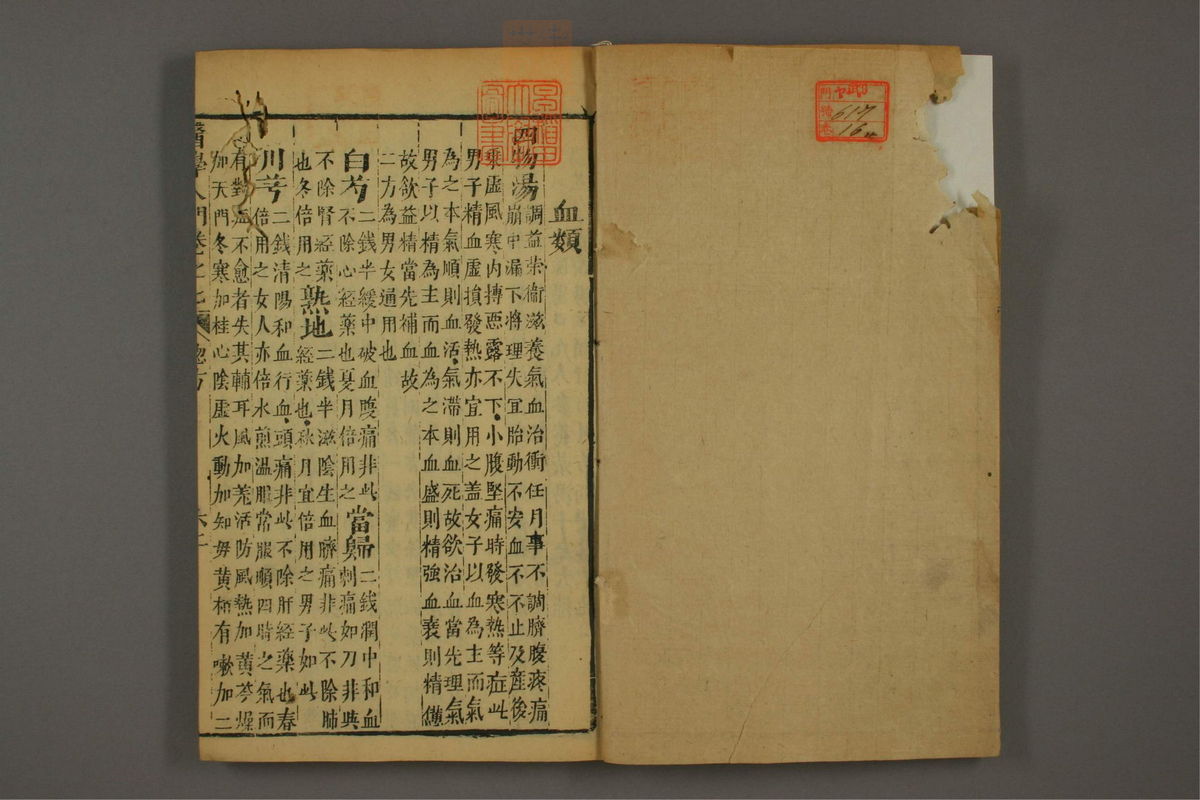 血類
四物湯調益榮衞滋養氣血治衝任月事不調臍腹疼痛
崩中漏下將理失宜胎動不安血不不止及産後
乗虛風寒内搏惡露不下小腹堅痛時發寒熱等症此
男子精血虛損發熱亦宜用之盖女子以血為主而氣
為之本氣順則血活氣滯則血死故欲治血當先理氣
男子以精為主而血為之本血盛則精強血衰則精憊
故欲益精當先補血故
二方為男女通用也
白芍二錢半緩中破血腹痛非此
不除心經藥也夏月倍用之
當歸二錢潤中和血
刺痛如刀非此
不除腎經藥
也冬倍用之
熟地二錢半滋陰生血臍痛非此不除肺
經藥也秋月宜倍用之男子如此
川芎二錢清陽和血行血頭痛非此不除肝經藥也春
倍用之女人亦倍水煎溫服常服順四時之氣而
有對症不愈者失其輔耳風加羌活防風熱加黄芩燥
加天門冬寒加桂心陰虛火動加知毋黄栢有嗽加二
醫學入門卷之七
總方
617
16